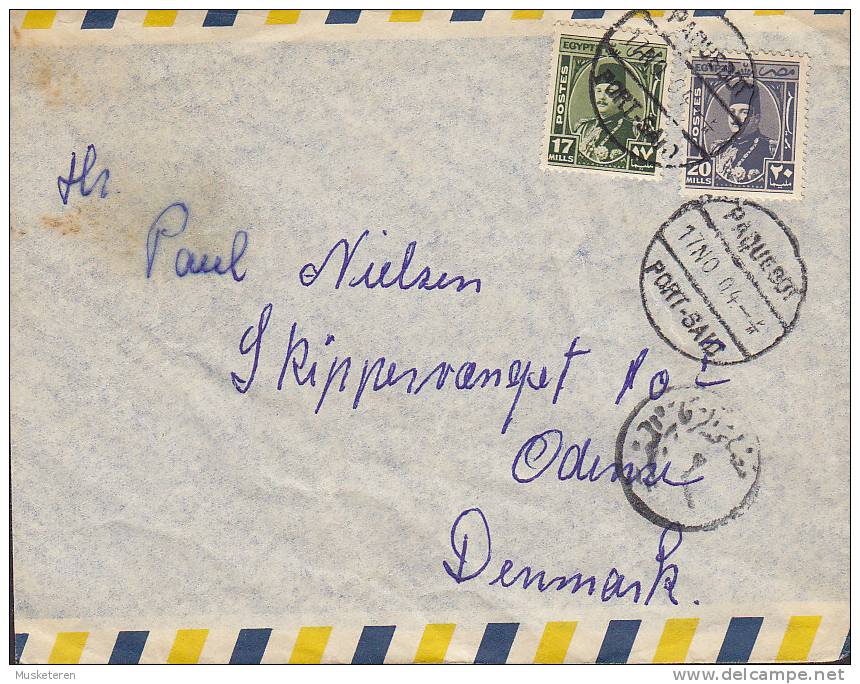 EGYPTE
POSTES
17
MILLS
١٧
EGYPTE مصر
POSTES
20
MILLS
٢٠
PAQUEBOT
PORT-SAID
PAQUEBOT
17 NO 04-
PORT-SAID
Hr.
Paul Nielsen
Skippervænget
Odense
Denmark.
Musketeren
delcampe.net